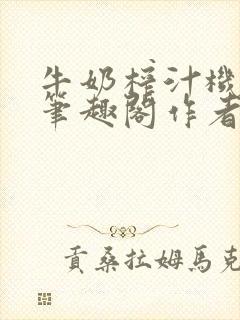 牛奶榨汁機
筆趣閣作者
貢桑拉姆馬克